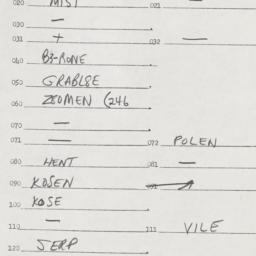 020 MIST 021 —
030 —
031 + 032 —
040 B3-RONE
050 GRABL8E
060 ZEOMEN (246
070 —
071 — 072 POLEN
080 HENT 081 —
090 KOSEN
100 KOSE
— 111 VILE
120 JERP